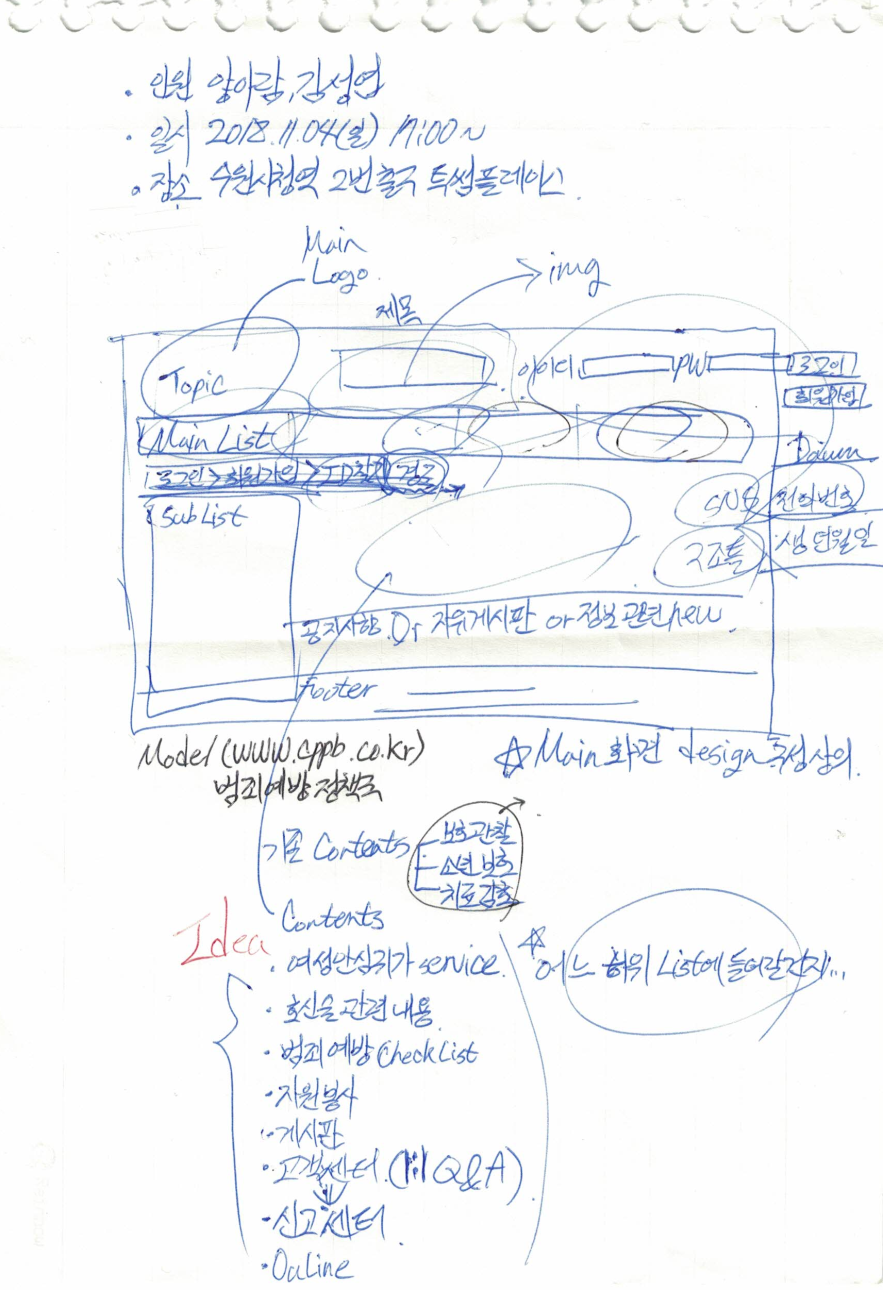 · 인원 양아람, 김성엽
· 일시 2018.11.04(일) 17:00~
· 장소 수원시청역 2번출구 투썸플레이스
Main
Logo
img
제목
Topic
아이디
PW
로그인
회원가입
Main List
Daum
로그인 > 회원가입 > ID찾기
Sub List
SNS
전화번호
생년월일
공지사항 Or 자유게시판 or 정보 관련 new
footer
Model (www.cppb.co.kr)
범죄예방정책국
☆ Main 화면 design 특성상의
기존 Contents
보호관찰
소년보호
치료감호
Contents
Idea
· 여성안심귀가 service
☆ 어느 하위 List에 들어갈건지...
· 호신술 관련 내용
· 범죄예방 Check List
· 자원봉사
· 게시판
· 고객센터 (1:1 Q&A)
· 신고센터
· OnLine